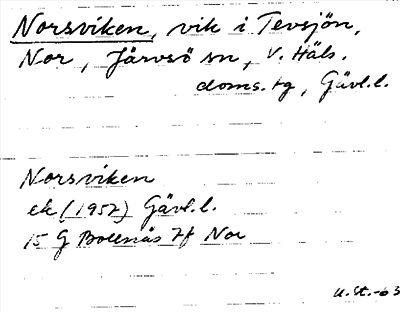 Norsviken, vik i Tevsjön,
Nor, Järvsö sn, V. Häls.
doms. tg, Gävl.l.
Norsviken
ek (1957) Gävl.l.
15 G Bollnäs 7f Nor
U.St.-63